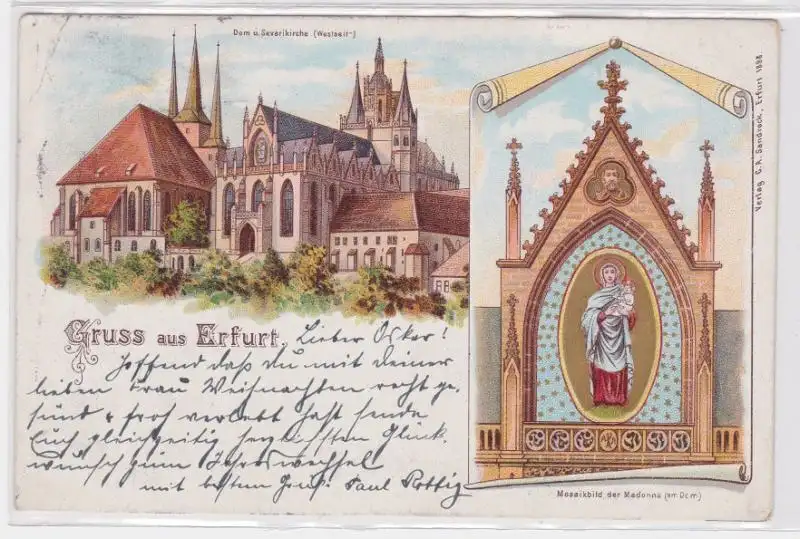 Dom u. Severikirche (Westseite)
Verlag C. A. Sandrock, Erfurt 1898
Gruss aus Erfurt.
Lieber Oskar!
Hoffend daß du mit deiner
lieben Frau Weihnachten recht ge-
sund & froh verlebt hast sende
Euch gleichzeitig herzlichsten Glück-
wunsch zum Jahreswechsel
mit bestem Gruß: Paul
Mosaikbild der Madonna (am Dom)